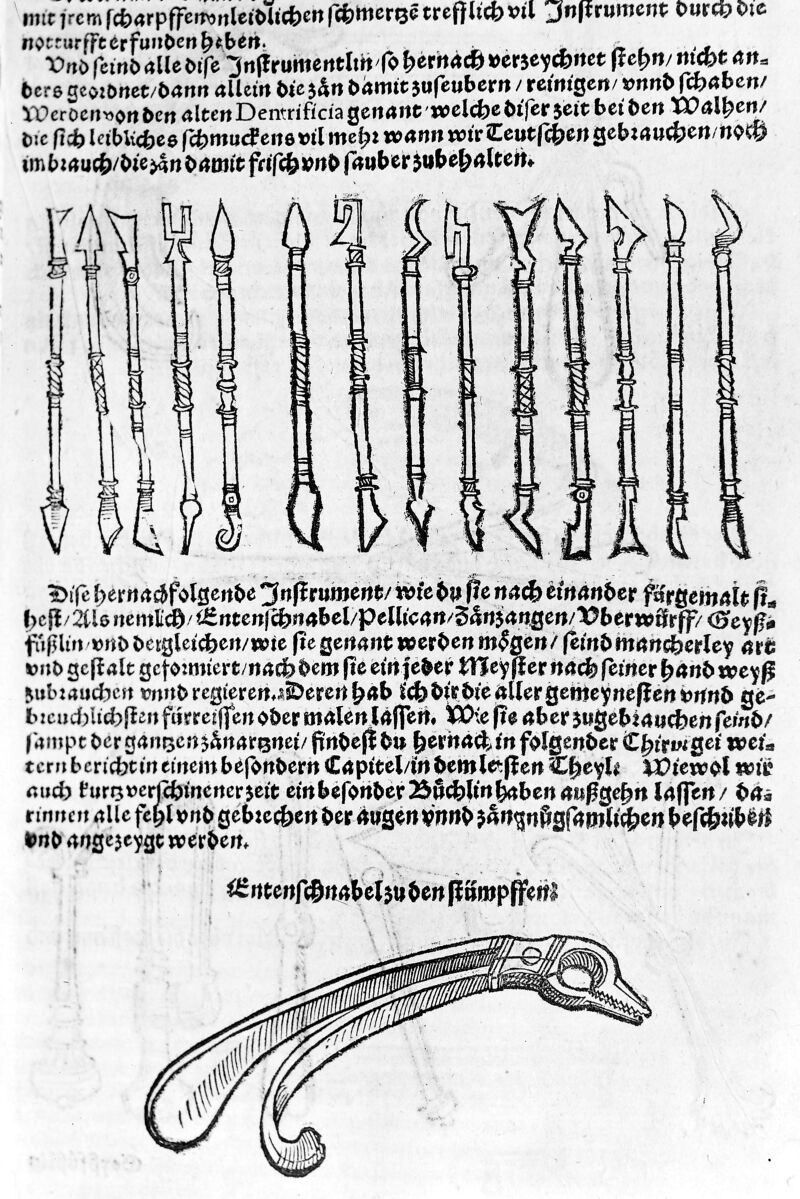 mit jrem scharpffen vnleidlichen schmertzē trefflich vil Instrument durch die
notturfft erfunden heben.
Vnd seind alle dise Instrumentlin/ so hernach verzeychnet stehn/ nicht an⸗
ders geordnet/ dann allein die zän damit zuseubern/ reinigen/ vnnd schaben/
Werden von den alten Dentrificia genant/ welche diser zeit bei den Walhen/
die sich leibliches schmuckens vil mehr wann wir Teutschen gebrauchen/ noch
im brauch/ die zän damit frisch vnd sauber zubehalten.
Dise hernachfolgende Instrument/ wie du sie nach einander fürgemalt si⸗
hest/ Als nemlich/ Entenschnabel/ Pellican/ Zänzangen/ Vberwürff/ Geyß⸗
füßlin/ vnd dergleichen/ wie sie genant werden mögen/ seind mancherley art
vnd gestalt geformiert/ nach dem sie ein jeder Meyster nach seiner hand weyß
zubrauchen vnnd regieren. Deren hab ich dir die aller gemeynesten vnnd ge⸗
breuchlichsten fürreissen oder malen lassen. Wie sie aber zugebrauchen seind/
sampt der gantzen zänartznei/ findest du hernach in folgender Chirurgei wei⸗
tern bericht in einem besondern Capitel/ in dem letsten Theyl. Wiewol wir
auch kurtzverschinener zeit ein besonder Büchlin haben außgehn lassen/ da⸗
rinnen alle fehl vnd gebrechen der augen vnnd zän gnůgsamlichen beschriben
vnd angezeygt werden.
Entenschnabel zu den stümpffen.